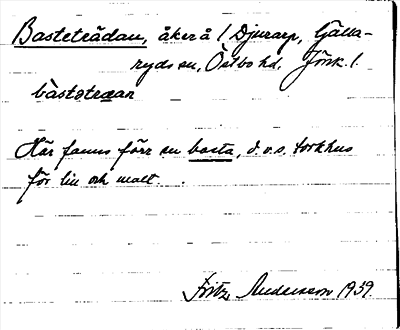 Basteträdan, åker å 1 Djurarp, Gälla-
ryds sn, Östbo hd. Jönk. l.
bàststræar
Här fanns förr en basta, d.v.s. torkhus
för lin och malt.
Fritz Andersson 1939.